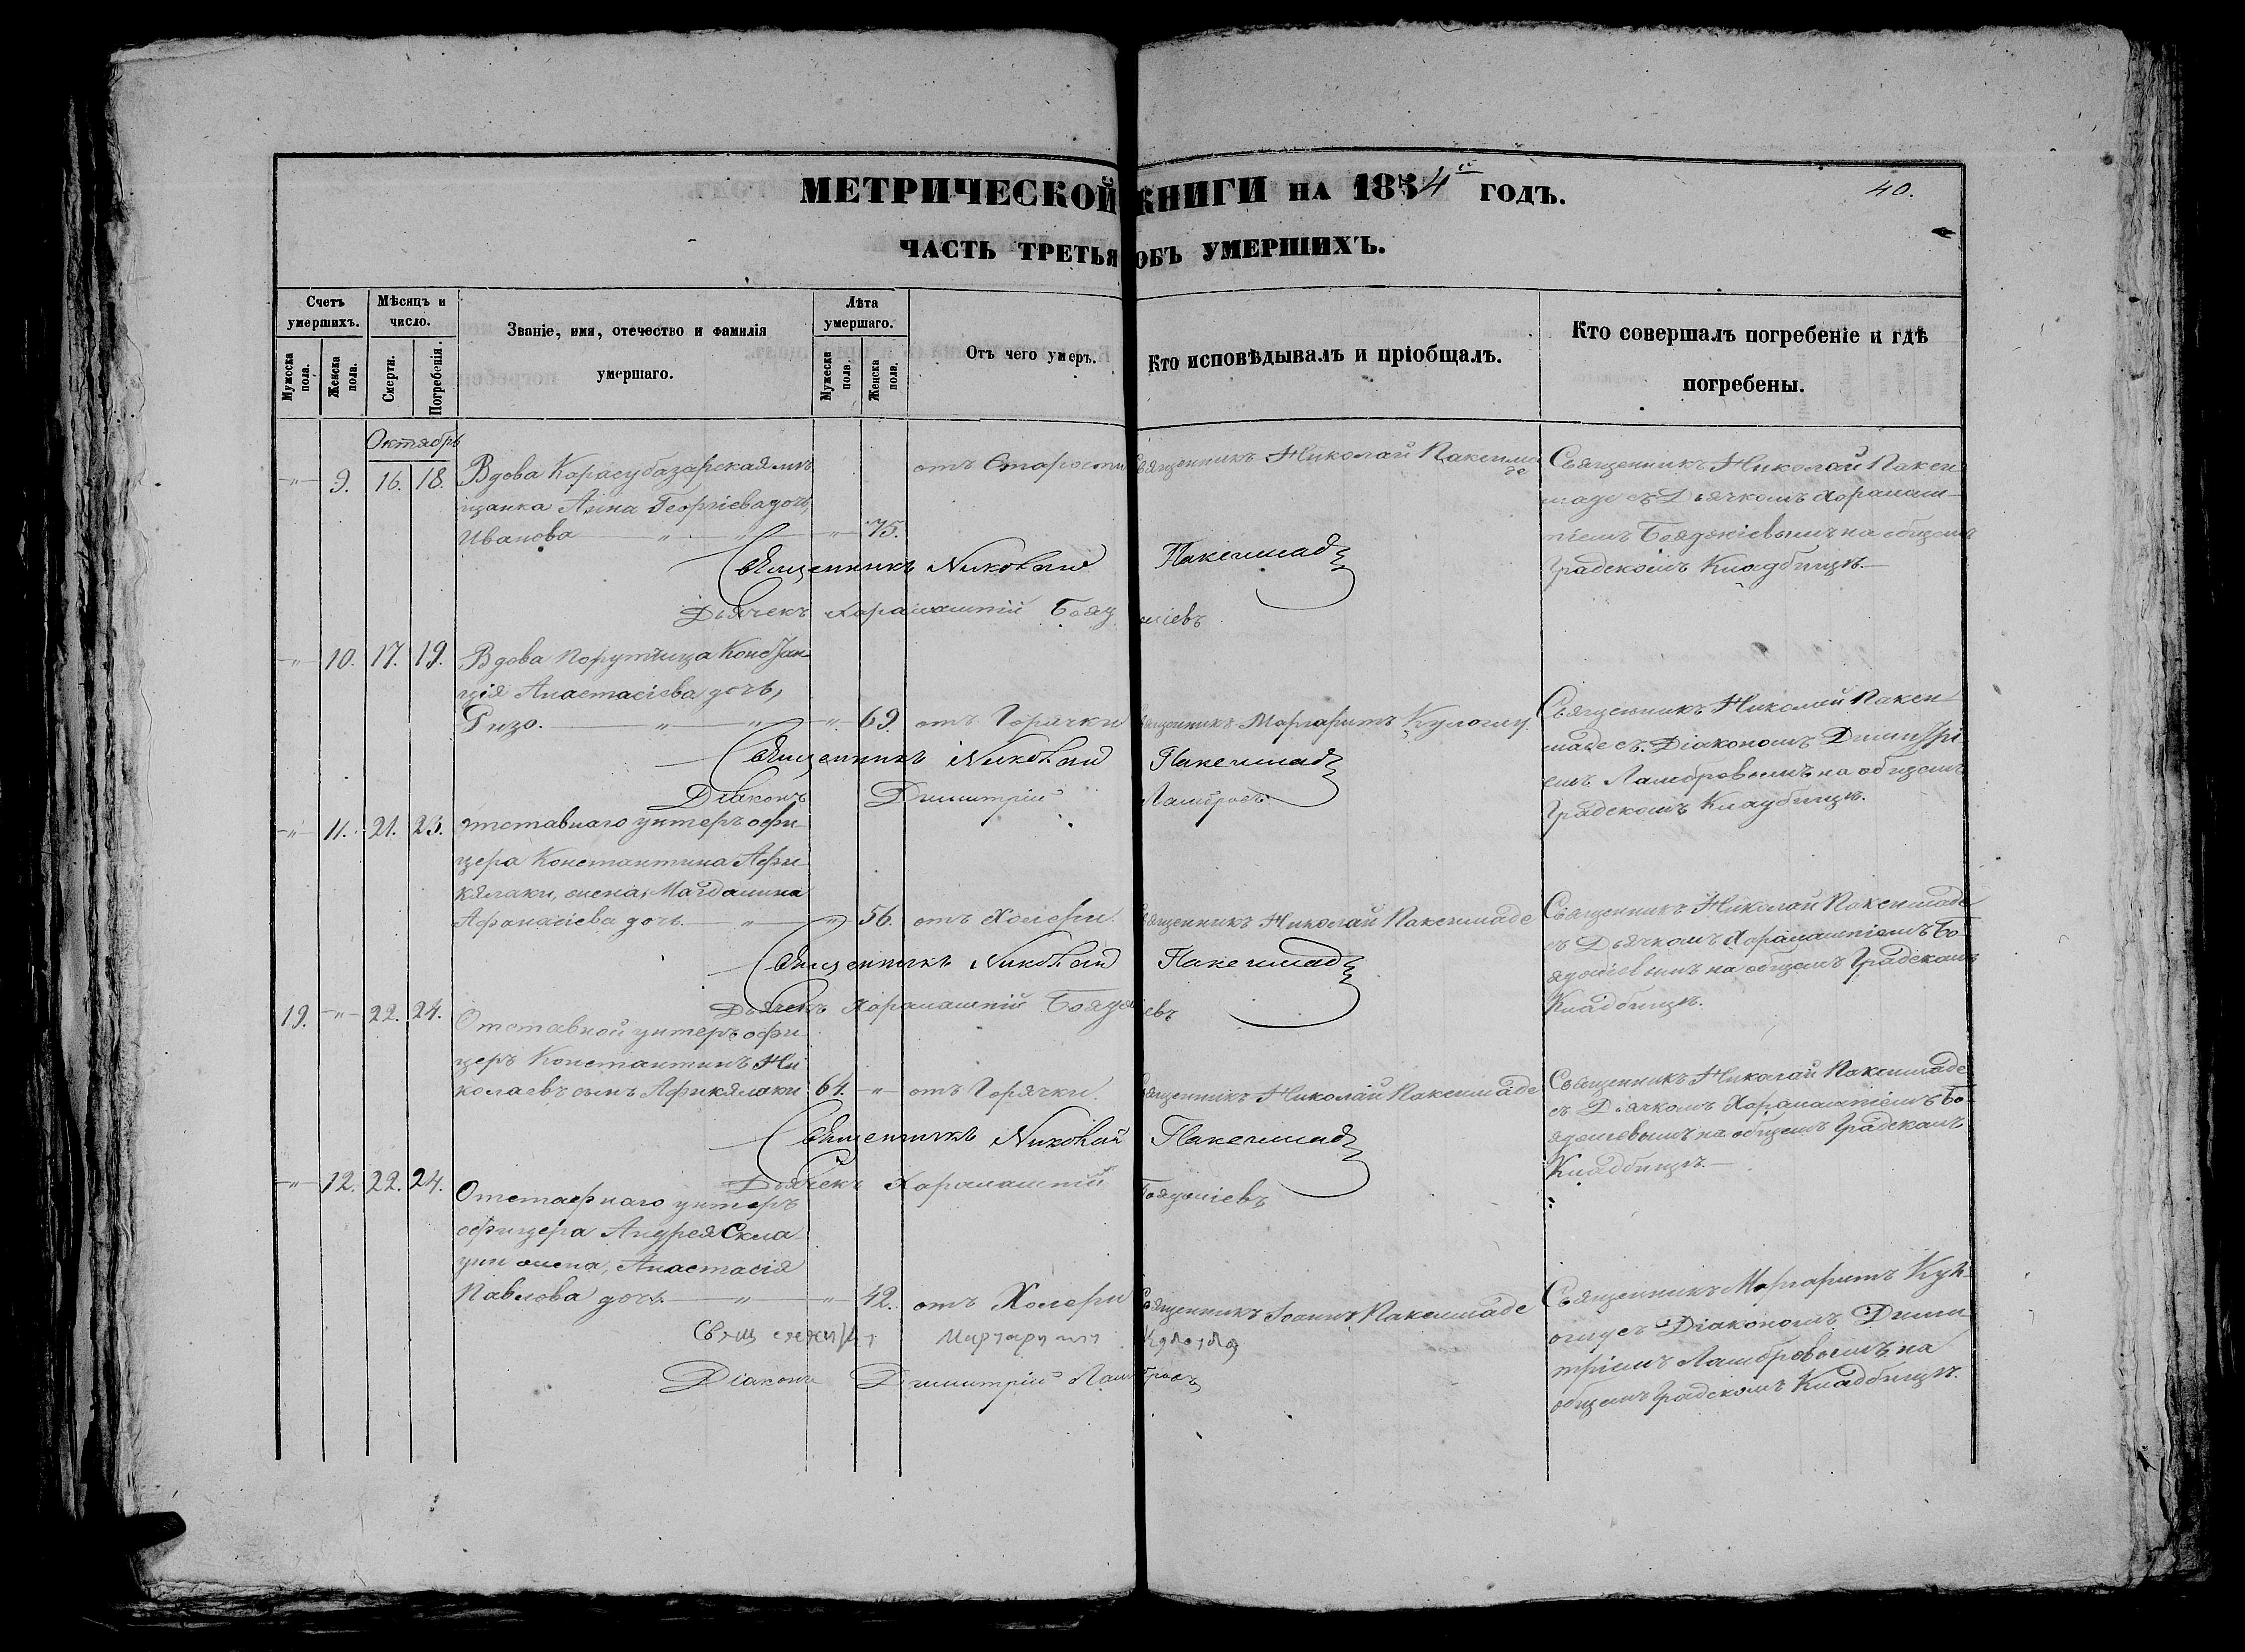 МЕТРИЧЕСКОЙ КНИГИ НА 1854 ГОДЪ.
40.
ЧАСТЬ ТРЕТЬЯ ОБЪ УМЕРШИХЪ.
Счетъ умершихъ.
Мужеска пола.
Женска пола.
Мѣсяцъ и число.
Смерти.
Погребенія.
Званіе, имя, отечество и фамилія
умершаго.
Лѣта умершаго.
Мужеска пола.
Женска пола.
Отъ чего умеръ.
Кто исповѣдывалъ и пріобщалъ.
Кто совершалъ погребеніе и гдѣ
погребены.
Октябрь
-"- 9. 16. 18.
Вдова Карасубазарская мѣ
щанка Анна Георгіева дочь,
Иванова " " " 75.
отъ Старости
Священникъ Николай Паксима
де
Священникъ Николай Пакси
маде съ Дьячкомъ Харалам
піемъ Бояджіевымъ на общемъ
Градскомъ Кладбищѣ.
Священникъ Николай Паксимад
Дьячекъ Харалампій Бояджіевъ
-"- 10. 17. 19.
Вдова Порутчица Констан
ція Анастасіева дочь,
Ризо. " " " 69. отъ Горячки
Священникъ Маргаритъ Кулоглу
Священникъ Николай Пакси
маде съ Діакономъ Димитрі
емъ Ламбровымъ на общемъ
Градскомъ Кладбищѣ.
Священникъ Николай Паксимад
Діаконъ Димитрій Ламбровъ.
-"- 11. 21. 23.
Отставнаго унтеръ офи
цера Константина Афи
кялаки, жена, Магдалина
Афанасіева дочь. " " 56. отъ Холеры.
Священникъ Николай Паксимаде
Священникъ Николай Паксимаде
съ Дьячкомъ Харалампіемъ Бо
яджіевымъ на общемъ Градскомъ
Кладбищѣ.
Священникъ Николай Паксимад
Дьячекъ Харалампій Бояджіевъ
19. -"- 22. 24.
Отставной унтеръ офи
церъ Константинъ Ни
колаевъ сынъ Афикялаки 64. -"- отъ Горячки.
Священникъ Николай Паксимаде
Священникъ Николай Паксимаде
съ Дьячкомъ Харалампіемъ Бо
яджіевымъ на общемъ Градскомъ
Кладбищѣ.
Священникъ Николай Паксимад
Дьячекъ Харалампій Бояджіевъ
-"- 12. 22. 24.
Отставнаго унтеръ
офицера Андрея Скла
жена, Анастасія
Павлова дочь. " " 42. отъ Холеры
Священникъ Іоаннъ Паксимаде
Священникъ Маргаритъ Кул
оглу съ Діакономъ Дими
тріемъ Ламбровымъ на
общемъ Градскомъ Кладбищѣ.
Діаконъ Димитрій Ламбровъ